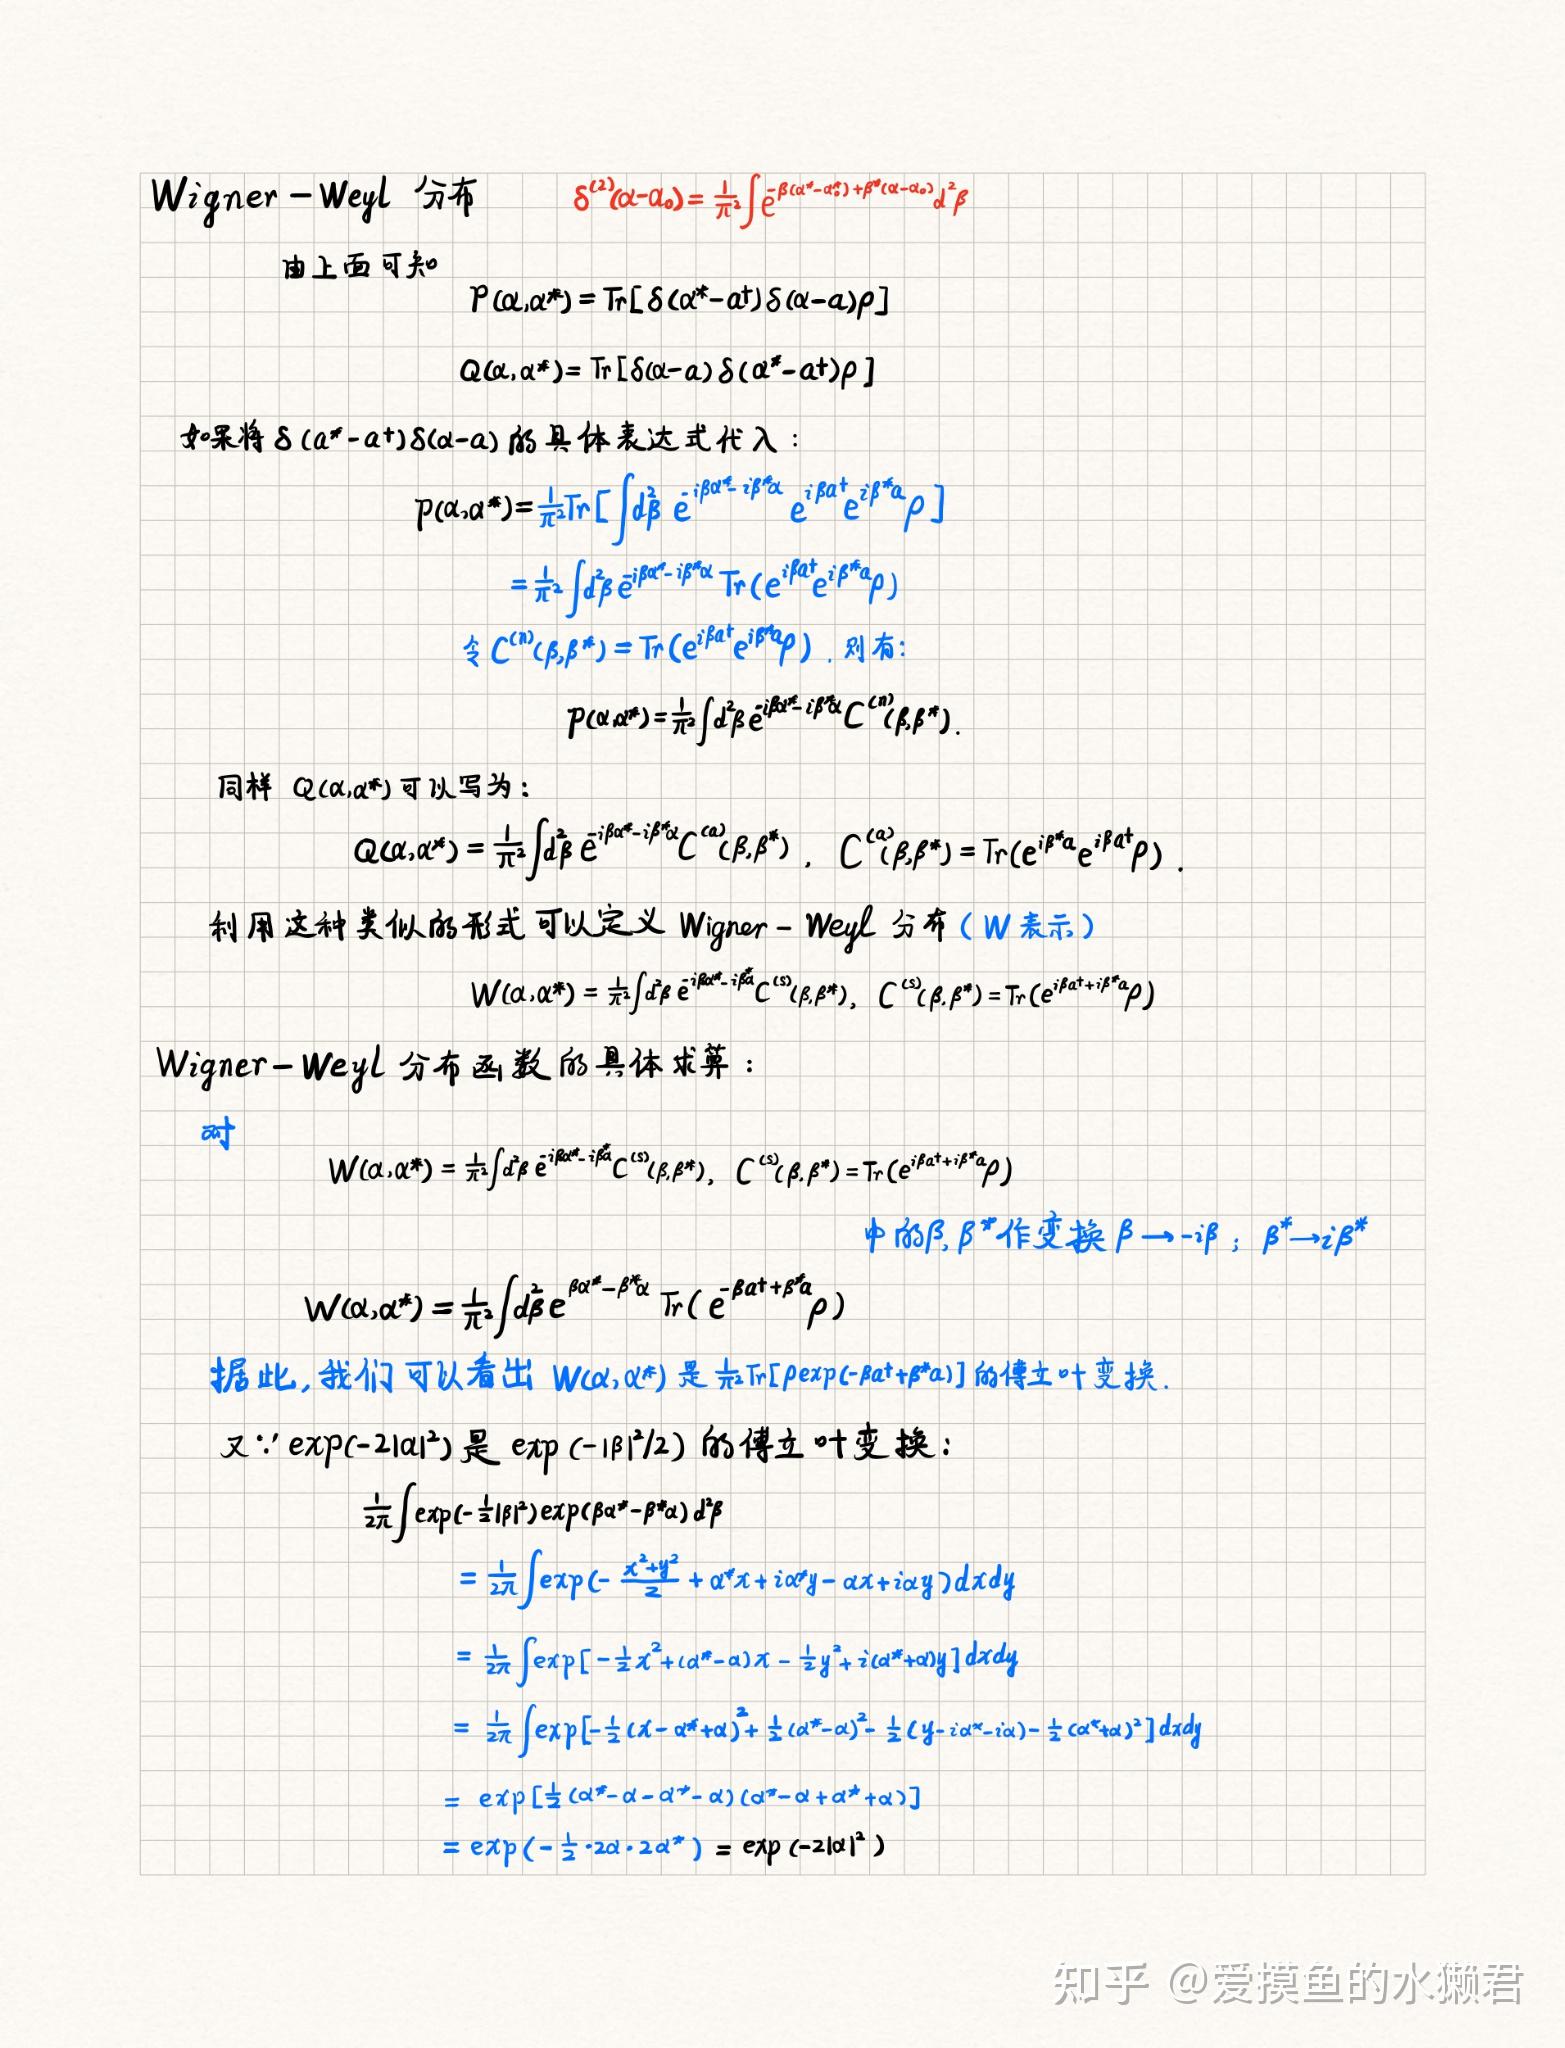 Wigner-Weyl 分布 δ⁽²⁾(α-α₀) = 1/π² ∫ e^{-β(α*-α₀*)+β*(α-α₀)} d²β
由上面可知
P(α,α*) = Tr[δ(α*-a†)δ(α-a)ρ]
Q(α,α*) = Tr[δ(α-a)δ(α*-a†)ρ]
如果将 δ(a*-a†)δ(α-a) 的具体表达式代入:
P(α,α*) = 1/π² Tr[∫d²β e^{-iβα*-iβ*α} e^{iβa†} e^{iβ*a} ρ]
= 1/π² ∫d²β e^{-iβα*-iβ*α} Tr(e^{iβa†} e^{iβ*a} ρ)
令 C⁽ⁿ⁾(β,β*) = Tr(e^{iβa†} e^{iβ*a} ρ) . 则有:
P(α,α*) = 1/π² ∫d²β e^{-iβα*-iβ*α} C⁽ⁿ⁾(β,β*).
同样 Q(α,α*) 可以写为:
Q(α,α*) = 1/π² ∫d²β e^{-iβα*-iβ*α} C⁽ᵃ⁾(β,β*) , C⁽ᵃ⁾(β,β*) = Tr(e^{iβ*a} e^{iβa†} ρ) .
利用这种类似的形式可以定义 Wigner-Weyl 分布 (W 表示)
W(α,α*) = 1/π² ∫d²β e^{-iβα*-iβ*α} C⁽ˢ⁾(β,β*), C⁽ˢ⁾(β,β*) = Tr(e^{iβa†+iβ*a} ρ)
Wigner-Weyl 分布函数的具体求算:
对
W(α,α*) = 1/π² ∫d²β e^{-iβα*-iβ*α} C⁽ˢ⁾(β,β*), C⁽ˢ⁾(β,β*) = Tr(e^{iβa†+iβ*a} ρ)
中的β, β*作变换 β → -iβ ; β* → iβ*
W(α,α*) = 1/π² ∫d²β e^{βα*-β*α} Tr(e^{-βa†+β*a} ρ)
据此, 我们可以看出 W(α,α*) 是 1/π² Tr[ρexp(-βa†+β*a)] 的傅立叶变换.
又∵ exp(-2|α|²) 是 exp(-|β|²/2) 的傅立叶变换:
1/2π ∫ exp(-1/2|β|²) exp(βα*-β*α) d²β
= 1/2π ∫ exp(-(x²+y²)/2 + α*x + iα*y - αx + iαy) dxdy
= 1/2π ∫ exp[-1/2 x² + (α*-α)x - 1/2 y² + i(α*+α)y] dxdy
= 1/2π ∫ exp[-1/2 (x-α*+α)² + 1/2 (α*-α)² - 1/2 (y-iα*-iα) - 1/2 (α*+α)²] dxdy
= exp[1/2 (α*-α-α*-α)(α*-α+α*+α)]
= exp(-1/2·2α·2α*) = exp(-2|α|²)
知乎 @爱摸鱼的水獭君